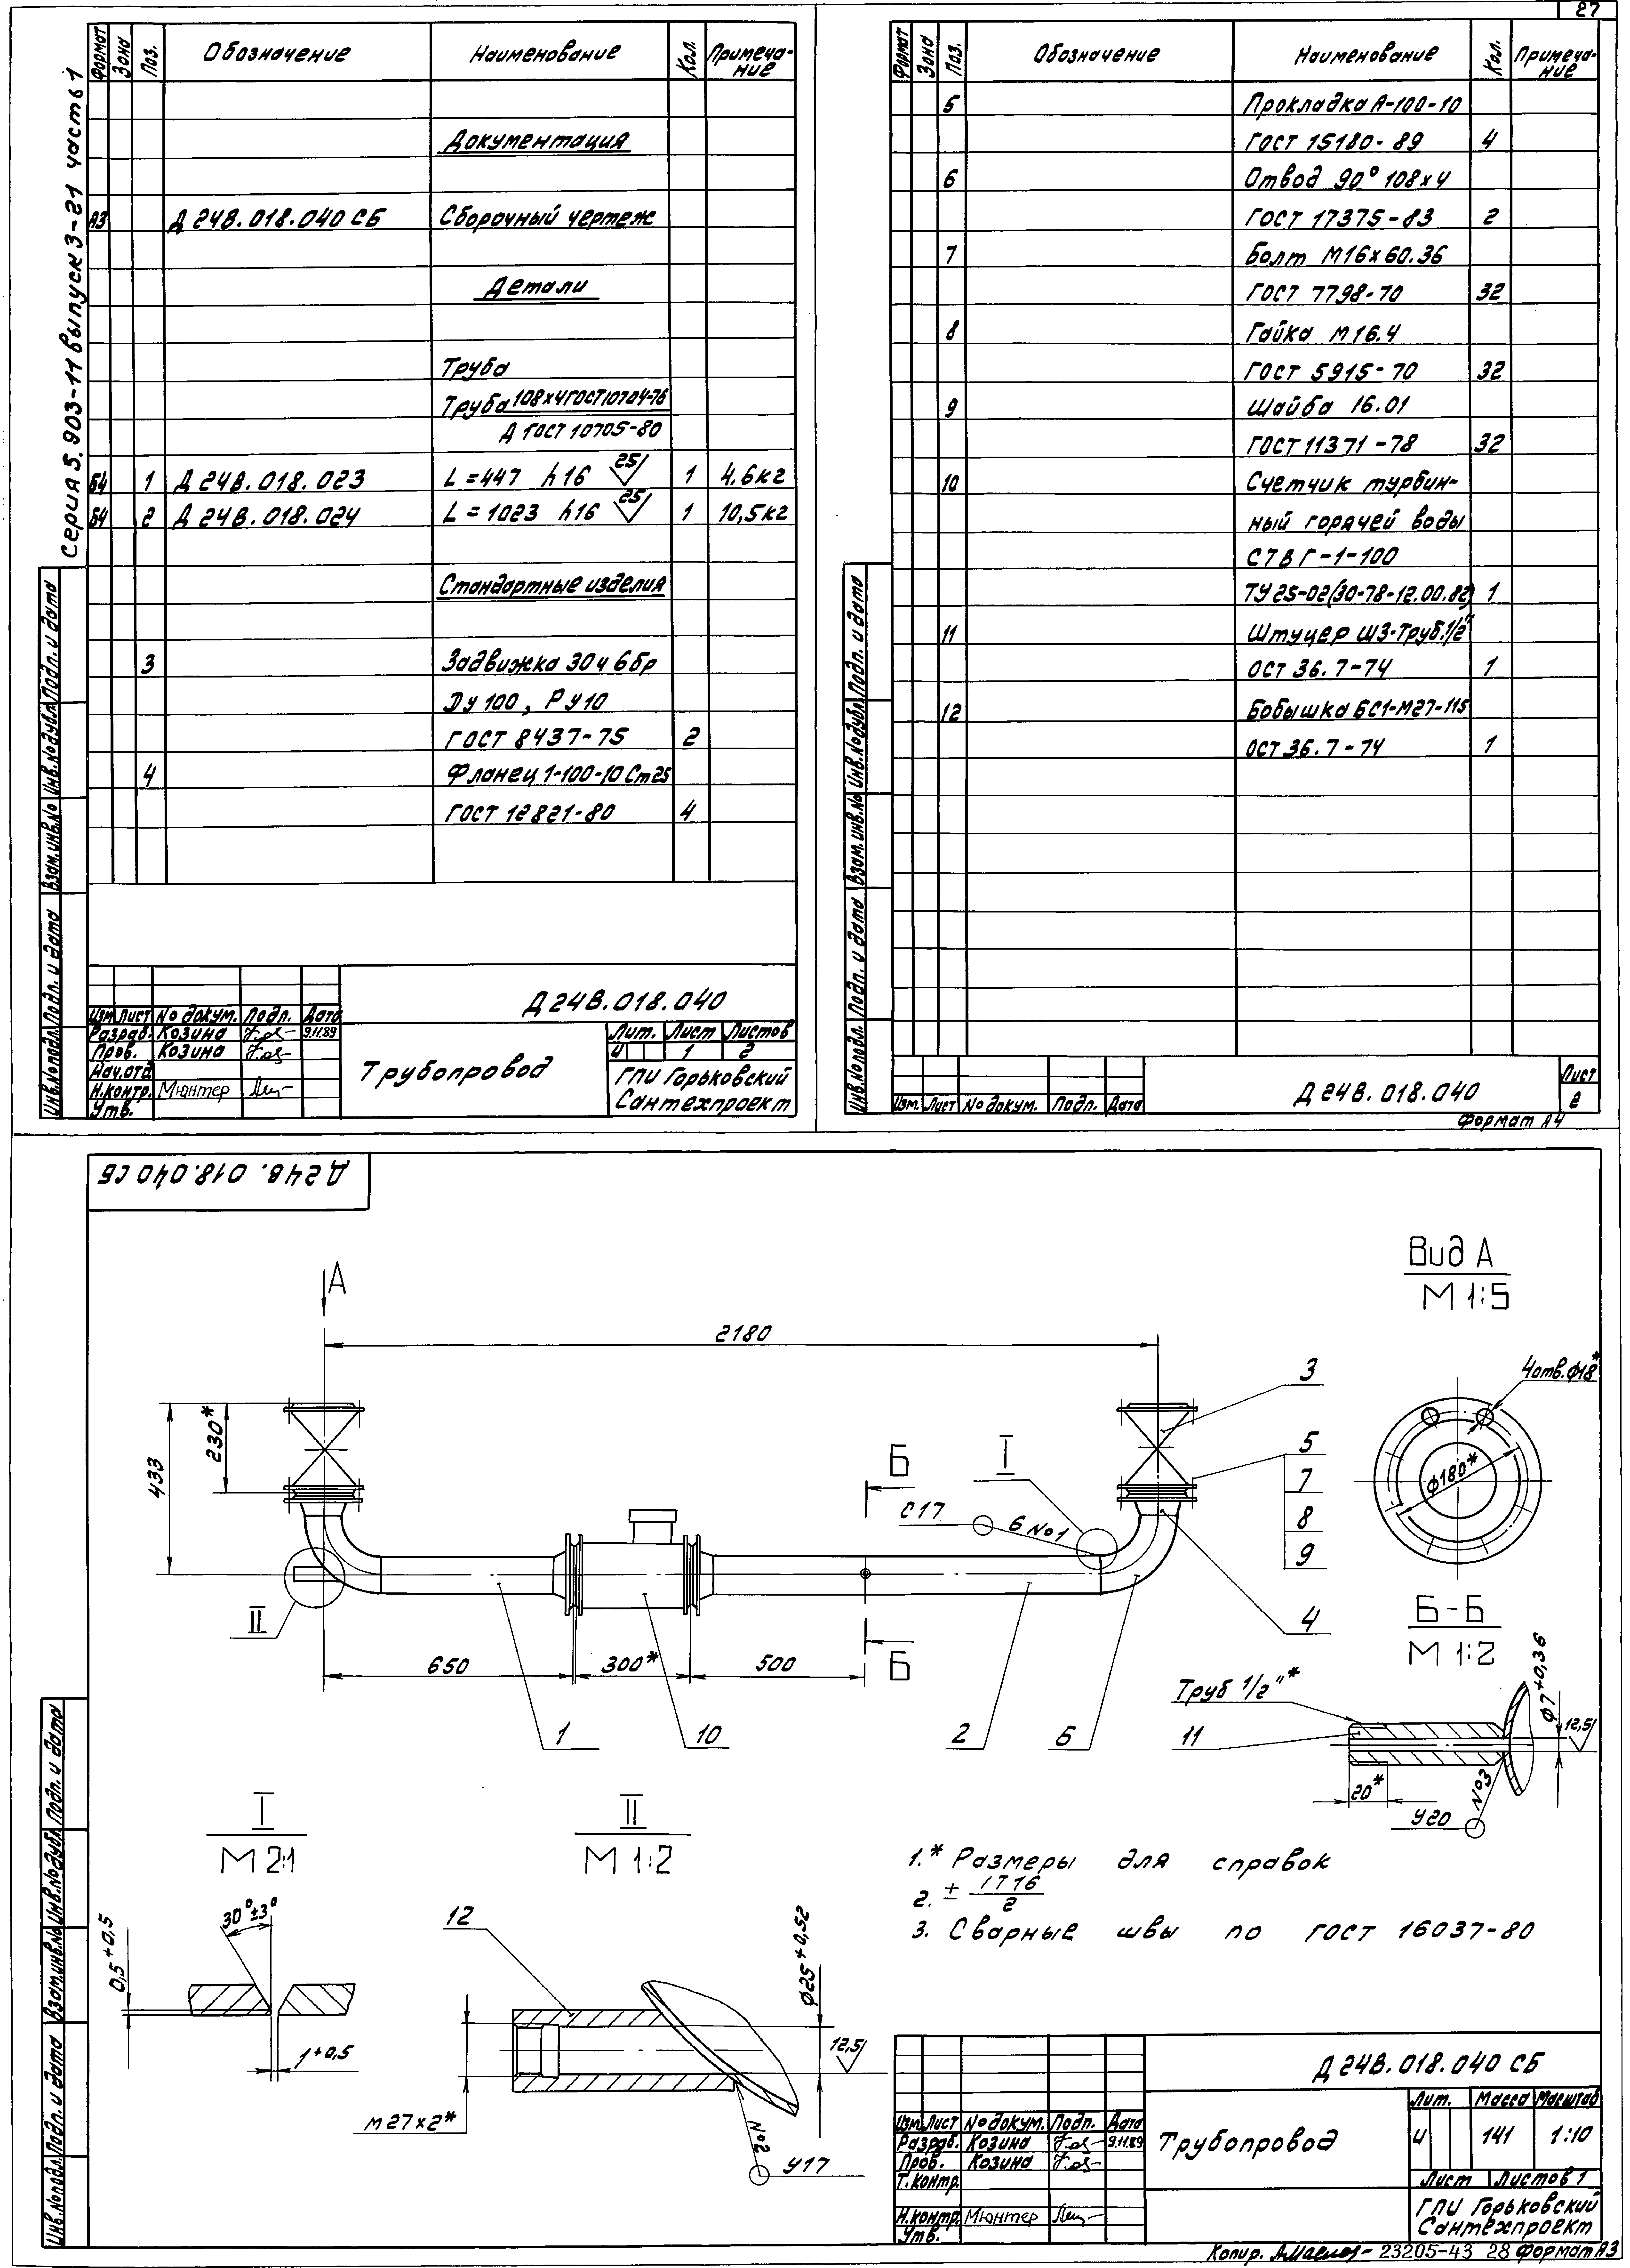 27
Серия 5.903-11 выпуск 3-21 часть 1
Формат Зона Поз. Обозначение Наименование Кол. Примеча-
ние
Документация
А3 Д 24В.018.040 СБ Сборочный чертеж
Детали
Труба
Труба 108х4 ГОСТ 10704-76
Д ГОСТ 10705-80
Б4 1 Д 24В.018.023 L=447 h16 25 1 4,6кг
Б4 2 Д 24В.018.024 L=1023 h16 25 1 10,5кг
Стандартные изделия
3 Задвижка 30ч 6бр
Ду 100, Ру 10
ГОСТ 8437-75 2
4 Фланец 1-100-10 Ст25
ГОСТ 12821-80 4
Инв.№ подл. Подп. и дата Взам.инв.№ Инв.№ дубл. Подп. и дата
Изм Лист № докум. Подп. Дата
Разраб. Козина 9.11.89
Пров. Козина
Нач.отд.
Н.контр. Мюнтер
Утв.
Д 24В.018.040
Трубопровод
Лит. Лист Листов
И 1 2
ГПИ Горьковский
Сантехпроект
Формат Зона Поз. Обозначение Наименование Кол. Примеча-
ние
5 Прокладка А-100-10
ГОСТ 15180-89 4
6 Отвод 90° 108х4
ГОСТ 17375-83 2
7 Болт М16х60.36
ГОСТ 7798-70 32
8 Гайка М16.4
ГОСТ 5915-70 32
9 Шайба 16.01
ГОСТ 11371-78 32
10 Счетчик турбин-
ный горячей воды
СТВГ-1-100
ТУ25-02(30-78-12.00.82) 1
11 Штуцер Ш3-Труб.1/2"
ОСТ 36.7-74 1
12 Бобышка БС1-М27-115
ОСТ 36.7-74 1
Инв.№ подл. Подп. и дата Взам.инв.№ Инв.№ дубл. Подп. и дата
Изм. Лист № докум. Подп. Дата
Д 24В.018.040
Лист
2
Формат А4
Д 24В.018.040 СБ
А
Вид А
М 1:5
2180
433
230*
3
5
7
8
9
4 отв.Ф18*
Ф180*
Б
I
С17
6 №1
II
4
Б
650
300*
500
1
10
2
6
Б-Б
М 1:2
Труб 1/2"*
11
Ф7+0,36
12,5
20*
№3
У20
I
М 2:1
30°±3°
0,5+0,5
1+0,5
II
М 1:2
12
Ф25+0,52
12,5
М27х2*
№2
У17
1.* Размеры для справок
2. ± IT16
2
3. Сварные швы по ГОСТ 16037-80
Инв.№ подл. Подп. и дата Взам.инв.№ Инв.№ дубл. Подп. и дата
Изм Лист № докум. Подп. Дата
Разраб. Козина 9.11.89
Пров. Козина
Т.контр.
Н.контр. Мюнтер
Утв.
Д 24В.018.040 СБ
Трубопровод
Лит. Масса Масштаб
И 141 1:10
Лист Листов 1
ГПИ Горьковский
Сантехпроект
Копир. 23205-43 28 Формат А3